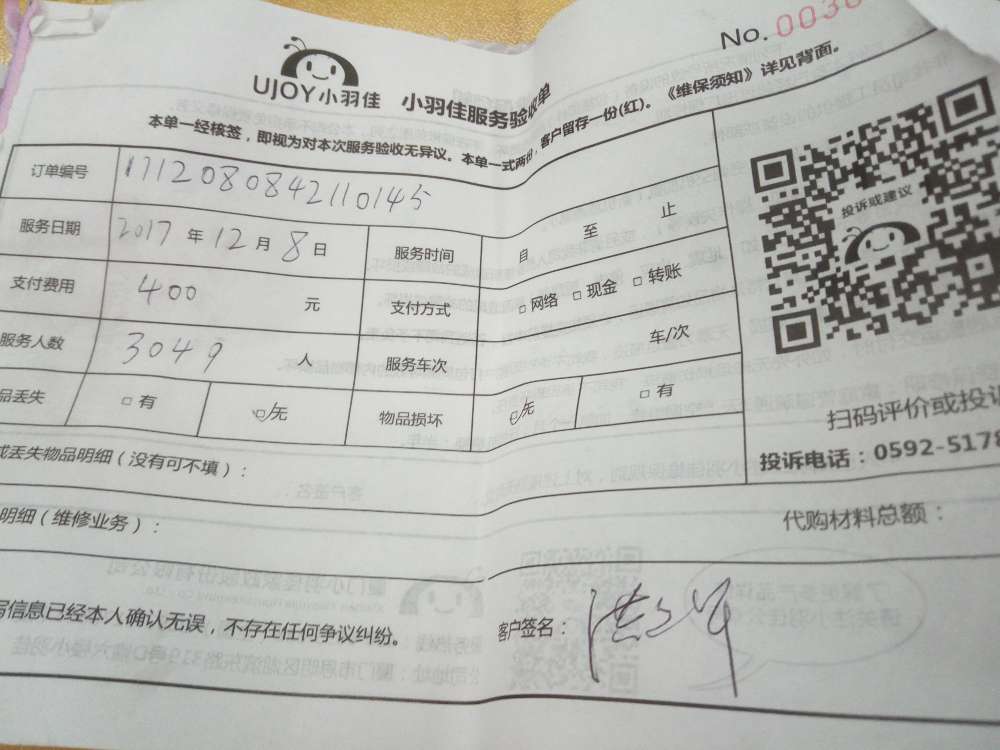 No. 0030
UJOY小羽佳 小羽佳服务验收单
本单一经核签，即视为对本次服务验收无异议。本单一式两份，客户留存一份(红)。《维保须知》详见背面。
订单编号 1712080842110145
服务日期 2017 年 12 月 8 日 服务时间 自 至 止
支付费用 400 元 支付方式 □网络 □现金 □转账
服务人数 3049 人 服务车次 车/次
品丢失 □有 ☑无 物品损坏 ☑无 □有
投诉或建议
扫码评价或投诉
投诉电话：0592-5178
或丢失物品明细（没有可不填）：
明细（维修业务）： 代购材料总额：
写信息已经本人确认无误，不存在任何争议纠纷。 客户签名：